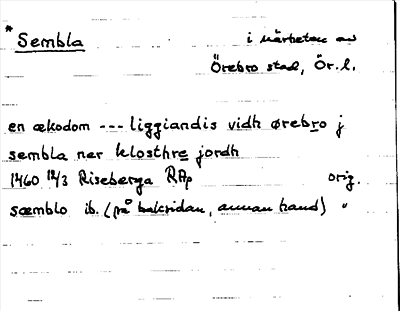 * Sembla i närheten av
Örebro stad, Ör. l.
en ækodom --- liggiandis vidh ørebro j
sembla ner klosthre jordh
1460 12/3 Riseberga RAp orig.
sæmblo ib. (på baksidan, annan hand) "